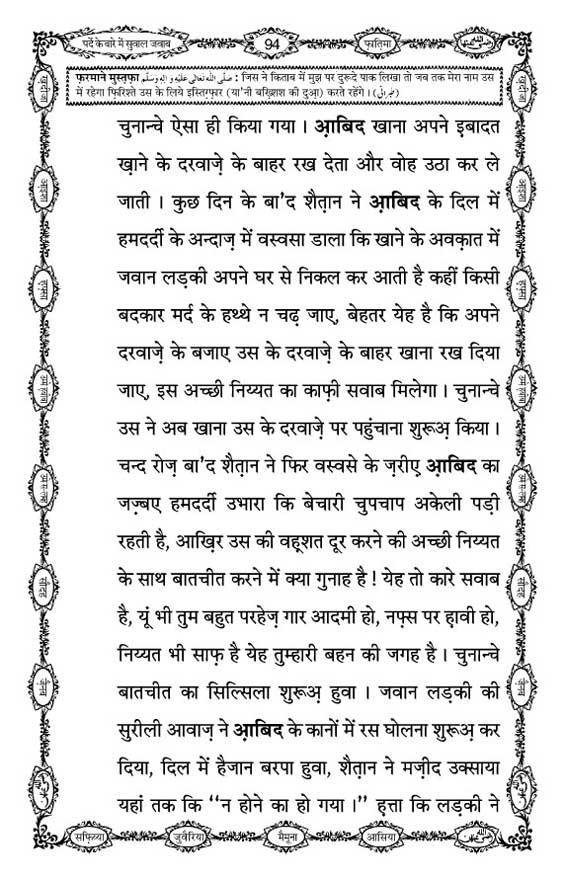 पर्दे के बारे में सुवाल जवाब
94
फ़ातिमा
फ़रमाने मुस्तफ़ा صلى الله تعالى عليه واله وسلم : जिस ने किताब में मुझ पर दुरूदे पाक लिखा तो जब तक मेरा नाम उस
में रहेगा फ़िरिश्ते उस के लिये इस्तिग़्फ़ार (या'नी बख़्शिश की दुआ) करते रहेंगे । (طبرانی)
चुनान्चे ऐसा ही किया गया । आ़बिद खाना अपने इबादत
ख़ाने के दरवाज़े के बाहर रख देता और वोह उठा कर ले
जाती । कुछ दिन के बा'द शैत़ान ने आ़बिद के दिल में
हमदर्दी के अन्दाज़ में वस्वसा डाला कि खाने के अवक़ात में
जवान लड़की अपने घर से निकल कर आती है कहीं किसी
बदकार मर्द के हथ्थे न चढ़ जाए, बेहतर येह है कि अपने
दरवाज़े के बजाए उस के दरवाज़े के बाहर खाना रख दिया
जाए, इस अच्छी निय्यत का काफ़ी सवाब मिलेगा । चुनान्चे
उस ने अब खाना उस के दरवाज़े पर पहुंचाना शुरूअ़ किया ।
चन्द रोज़ बा'द शैत़ान ने फिर वस्वसे के ज़रीए आ़बिद का
जज़्बए हमदर्दी उभारा कि बेचारी चुपचाप अकेली पड़ी
रहती है, आख़िर उस की वह़्शत दूर करने की अच्छी निय्यत
के साथ बातचीत करने में क्या गुनाह है ! येह तो कारे सवाब
है, यूं भी तुम बहुत परहेज़ गार आदमी हो, नफ़्स पर ह़ावी हो,
निय्यत भी साफ़ है येह तुम्हारी बहन की जगह है । चुनान्चे
बातचीत का सिल्सिला शुरूअ़ हुवा । जवान लड़की की
सुरीली आवाज़ ने आ़बिद के कानों में रस घोलना शुरूअ़ कर
दिया, दिल में हैजान बरपा हुवा, शैत़ान ने मज़ीद उक्साया
यहां तक कि “न होने का हो गया ।” ह़त्ता कि लड़की ने
सफ़िय्या
जुवैरिया
मैमूना
आसिया